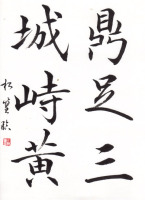 鼎足三
城峙黄